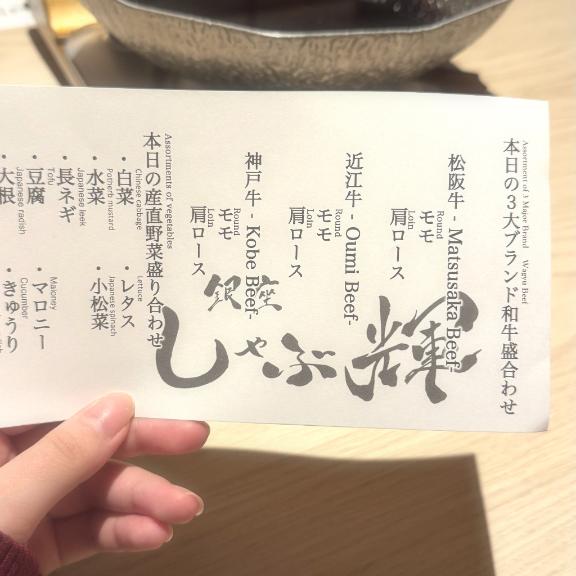 本日の3大ブランド和牛盛合わせ
Assortment of 3 Major Brand Wagyu Beef
松阪牛 - Matsusaka Beef-
モモ
Round
肩ロース
Loin
近江牛 - Oumi Beef-
モモ
Round
肩ロース
Loin
神戸牛 - Kobe Beef-
モモ
Round
肩ロース
Loin
銀座
しゃぶ輝
本日の産直野菜盛り合わせ
Assortments of vegetables
・白菜
Chinese cabbage
・レタス
Lettuce
・水菜
Potherb mustard
・小松菜
Japanese spinach
・長ネギ
Japanese leek
・豆腐
Tofu
・マロニー
Maloney
・大根
Japanese radish
・きゅうり
Cucumber